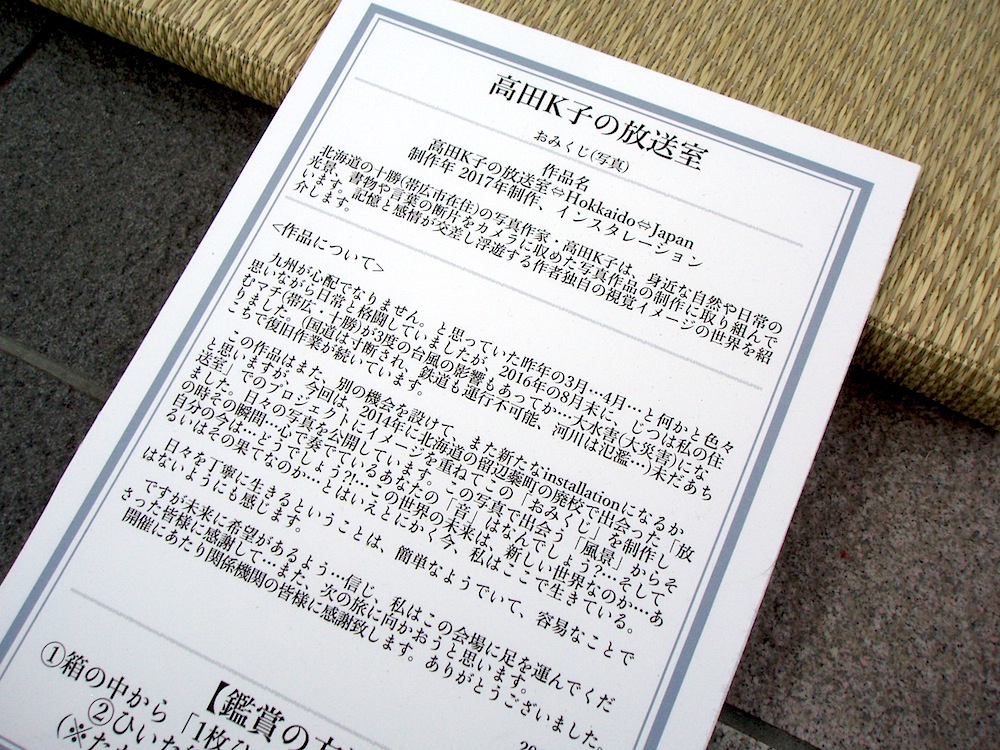 高田K子の放送室
おみくじ(写真)
作品名
高田K子の放送室⇔Hokkaido⇔Japan
制作年 2017年制作、インスタレーション
北海道の十勝(帯広市在住)の写真作家・高田K子は、身近な自然や日常の
光景、書物や言葉の断片をカメラに収めた写真作品の制作に取り組んで
います。記憶と感情が交差し浮遊する作者独自の視覚イメージの世界を紹
介します。
<作品について>
九州が心配でなりません。と思っていた昨年の3月…4月…と何かと色々
思いながら日常と格闘していましたが、2016年の8月末に、じつは私の住
むマチ(帯広・十勝)が3度の台風の影響もあってか…大水害(大災害)にな
りました。(国道は寸断され、鉄道も運行不可能、河川は氾濫…)未だあち
こちで復旧作業が続いています。
この作品はまた、別の機会を設けて、また新たなinstallationになるか
と思いますが、今回は、2014年に北海道の留辺蘂町の廃校で出会った「放
送室」でのプロジェクトにイメージを重ねてこの「おみくじ」を制作し
ました。日々の写真を公開しています。この写真で出会う「風景」からそ
の時その瞬間…心で奏でているあなたの「音」はなんでしょう?…そして
自分の今は…どうでしょう?!…この世界の未来は、新しい世界なのか…あ
るいはその果てなのか…とはいえとにかく今、私はここで生きている。
日々を丁寧に生きるということは、簡単なようでいて、容易なことで
はないようにも感じます。
ですが未来に希望があるよう…信じ、私はこの会場に足を運んでくだ
さった皆様に感謝して…また、次の旅に向かおうと思います。
開催にあたり関係機関の皆様に感謝致します。ありがとうございました。
20
【鑑賞の方
①箱の中から「1枚ひ
②ひいた